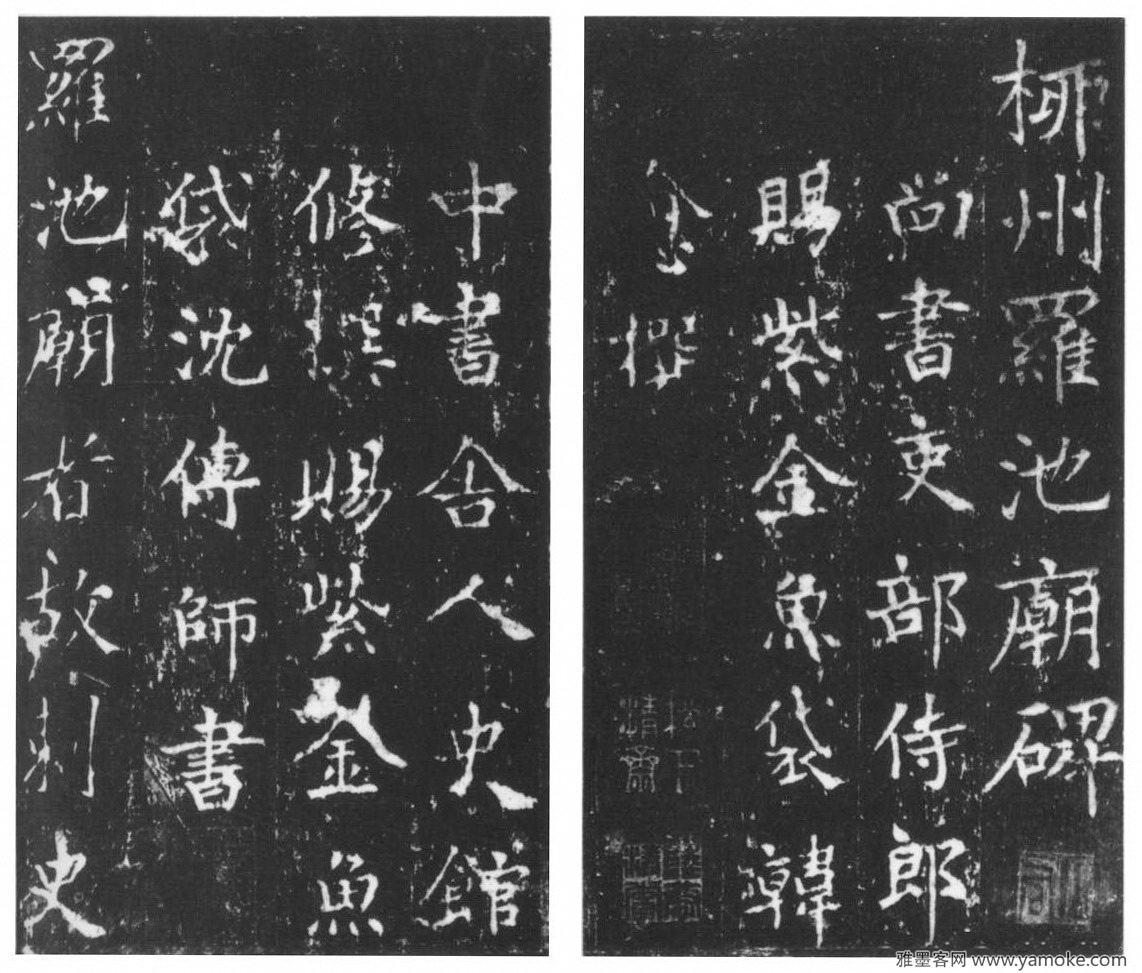 柳州羅池廟碑
尚書吏部侍郎
賜紫金魚袋韓
愈撰
中書舍人史館
修撰賜紫金魚
袋沈傳師書
羅池廟者故刺史
雅墨客网 www.yamoke.com